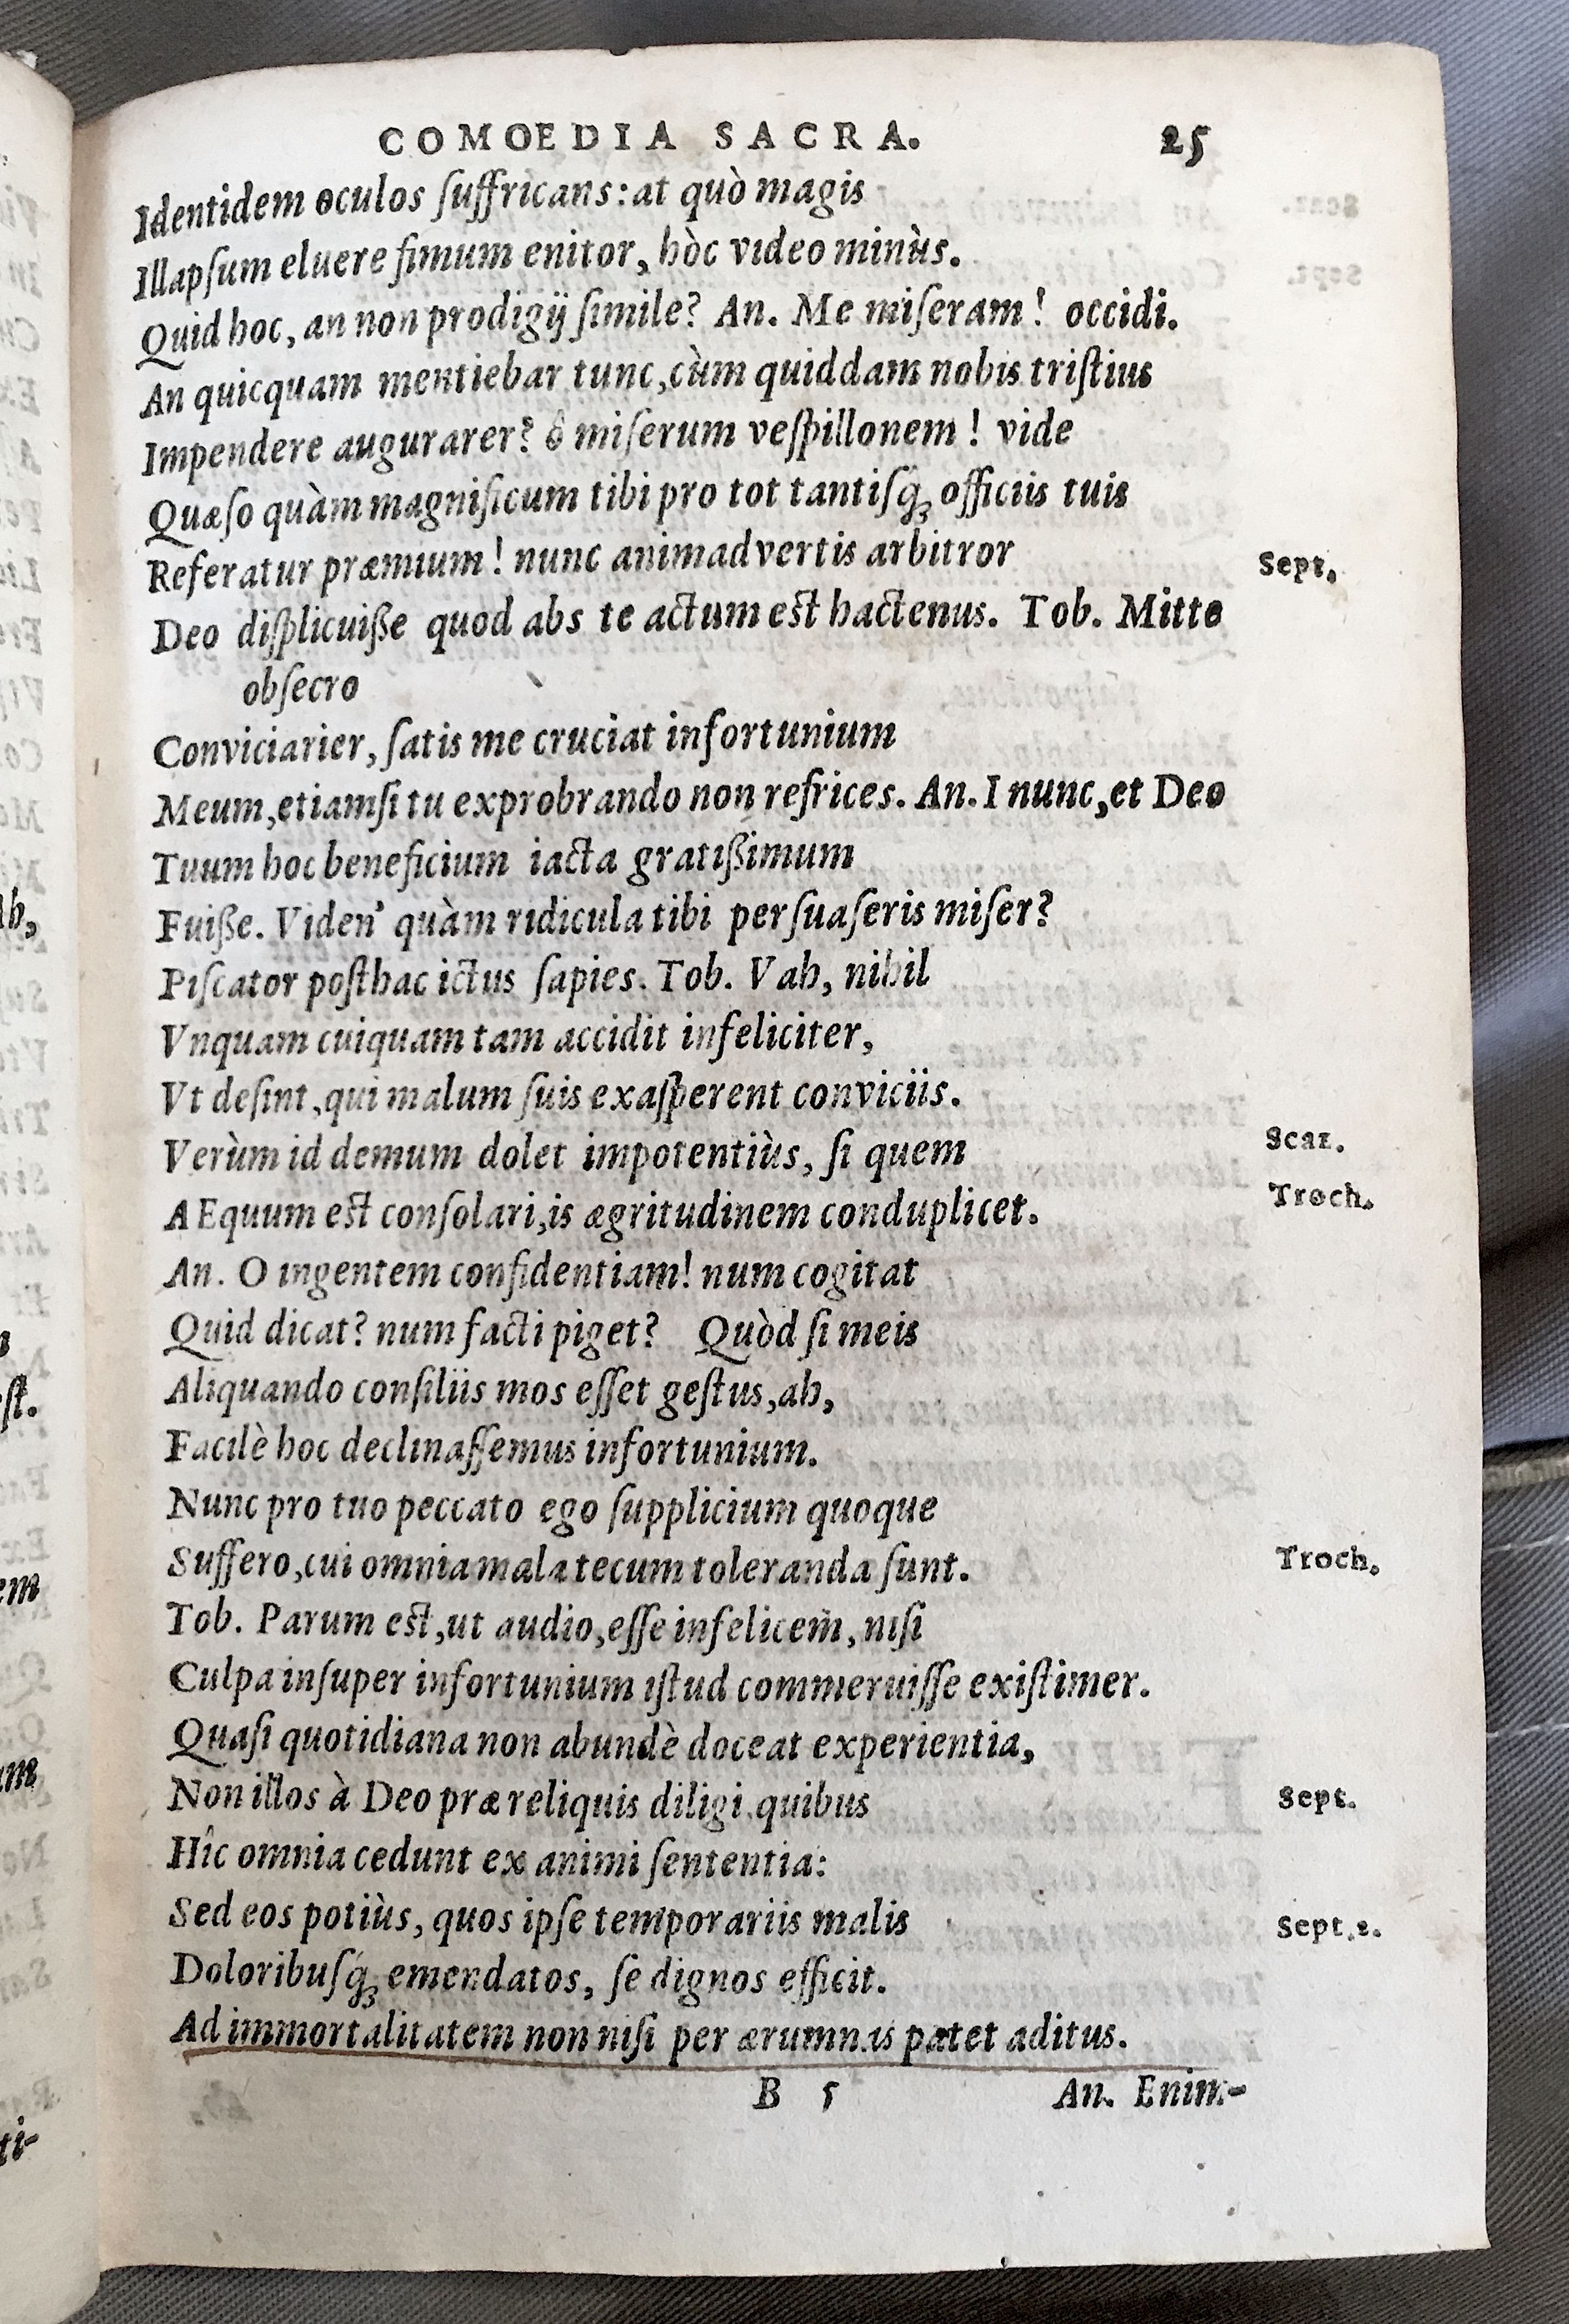 COMOEDIA SACRA. 25
Identidem oculos ſuffricans: at quò magis
Illapſum eluere fimum enitor, hòc video minùs.
Quid hoc, an non prodigij ſimile? An. Me miſeram! occidi.
An quicquam mentiebar tunc, cùm quiddam nobis triſtius
Impendere augurarer? ô miſerum veſpillonem! vide
Quæſo quàm magnificum tibi pro tot tantiſq́ꝫ officiis tuis
Referatur præmium! nunc animadvertis arbitror Sept.
Deo diſplicuiße quod abs te actum est hactenus. Tob. Mitte
obſecro
Conviciarier, ſatis me cruciat infortunium
Meum, etiamſi tu exprobrando non refrices. An. I nunc, et Deo
Tuum hoc beneficium iacta gratißimum
Fuiße. Viden' quàm ridicula tibi perſuaſeris miſer?
Piſcator poſthac ictus ſapies. Tob. Vah, nihil
Vnquam cuiquam tam accidit infeliciter,
Vt deſint, qui malum ſuis exaſperent conviciis.
Verùm id demum dolet impotentiùs, ſi quem Scaz.
AEquum est conſolari, is ægritudinem conduplicet. Troch.
An. O ingentem confidentiam! num cogitat
Quid dicat? num facti piget? Quòd ſi meis
Aliquando conſiliis mos eſſet geſtus, ah,
Facilè hoc declinaſſemus infortunium.
Nunc pro tuo peccato ego ſupplicium quoque
Suffero, cui omnia mala tecum toleranda ſunt. Troch.
Tob. Parum est, ut audio, eſſe infelicem, niſi
Culpa inſuper infortunium iſtud commeruiſſe exiſtimer.
Quaſi quotidiana non abundè doceat experientia,
Non illos à Deo præ reliquis diligi, quibus Sept.
Hîc omnia cedunt ex animi ſententia:
Sed eos potiùs, quos ipſe temporariis malis Sept.2.
Doloribuſq́ꝫ emendatos, ſe dignos efficit.
Ad immortalitatem non niſi per ærumnas patet aditus.
B 5 An. Enim-